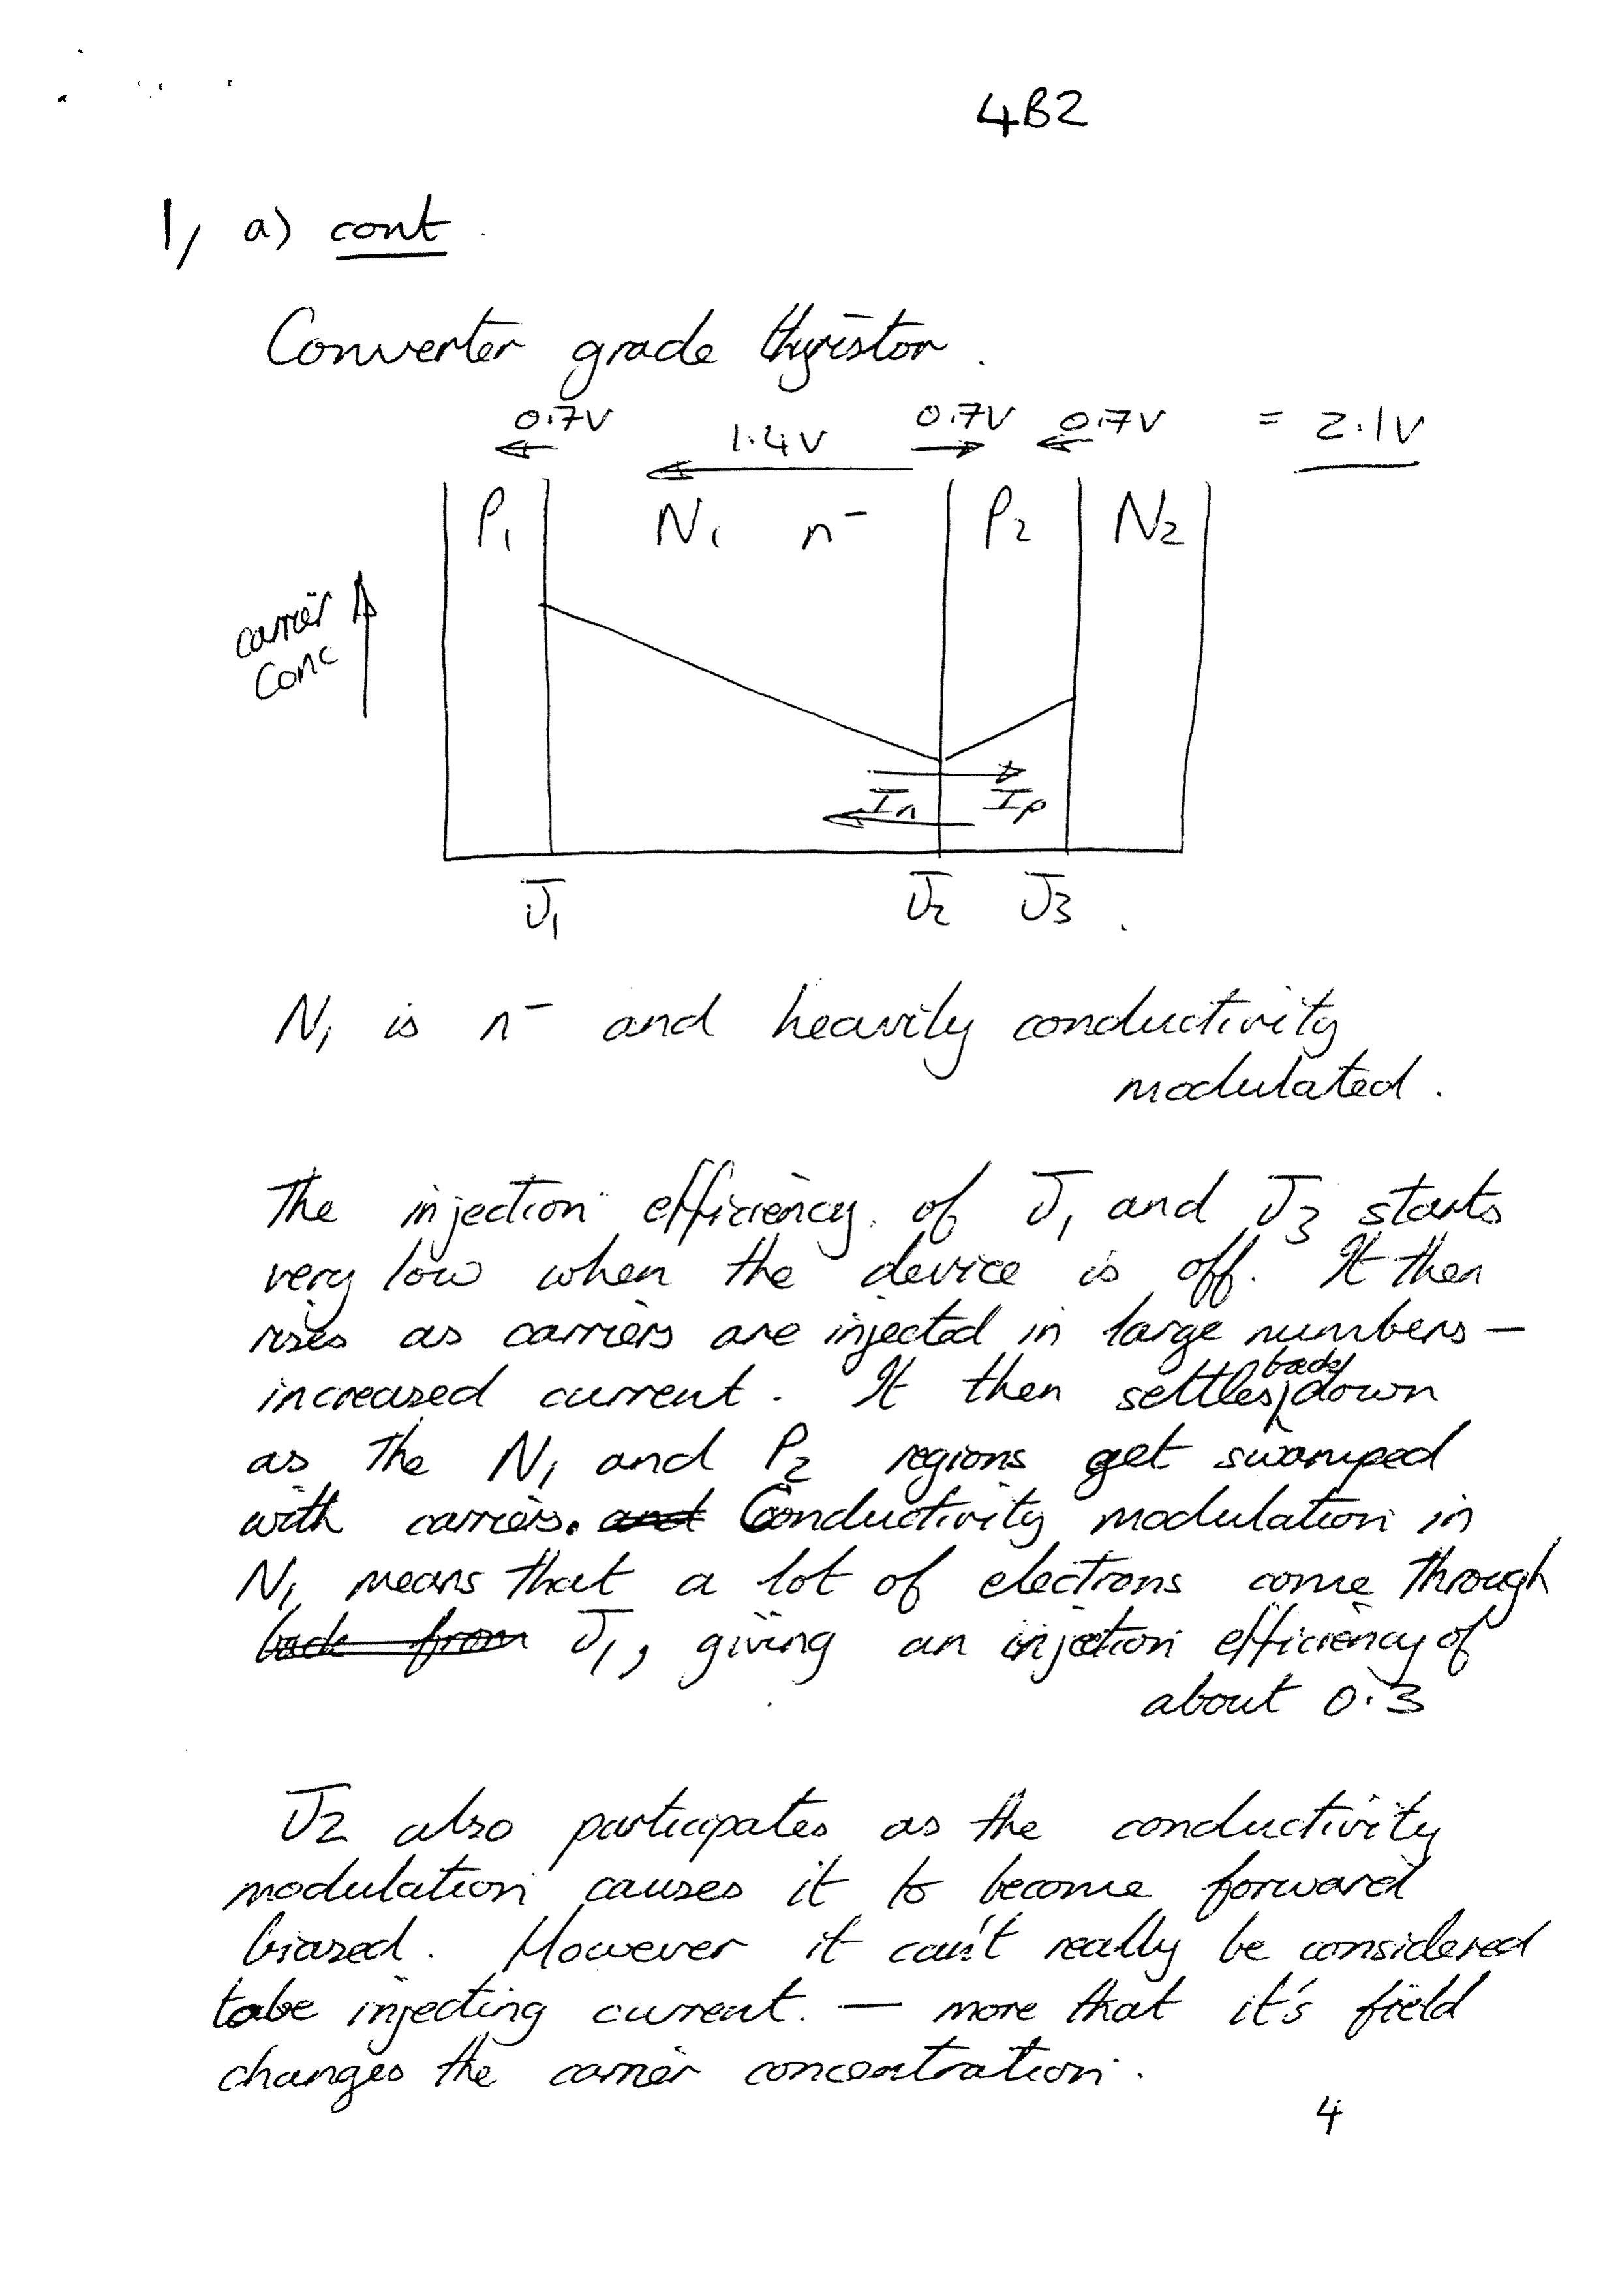 4B2
1, a) cont.
Converter grade thyristor.
0.7V 1.4V 0.7V 0.7V = 2.1V
P1 N1 n⁻ P2 N2
carrier
conc
In Ip
J1 J2 J3
N1 is n⁻ and heavily conductivity
modulated.
The injection efficiency of J1 and J3 starts
very low when the device is off. It then
rises as carriers are injected in large numbers —
increased current. It then settles back down
as the N1 and P2 regions get swamped
with carriers. and Conductivity modulation in
N1 means that a lot of electrons come through
back from J1, giving an injection efficiency of
about 0.3
J2 also participates as the conductivity
modulation causes it to become forward
biased. However it can't really be considered
to be injecting current. — more that it's field
changes the carrier concentration.
4